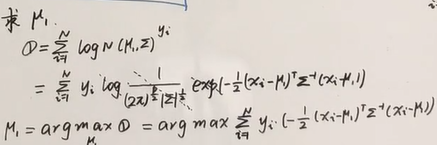 求 μ₁.
① = ∑_{i=1}^{N} log N(μ₁,Σ)^{y_i}
= ∑_{i=1}^{N} y_i log 1/((2π)^{p/2}|Σ|^{1/2}) exp(-1/2 (x_i-μ₁)^T Σ^{-1} (x_i-μ₁))
μ₁ = arg max_{μ₁} ① = arg max ∑_{i=1}^{N} y_i (-1/2 (x_i-μ₁)^T Σ^{-1} (x_i-μ₁))